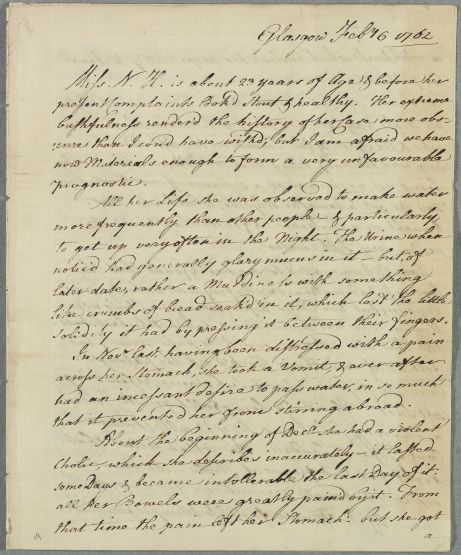 Glasgow Febry 6 1762
Miss. N. H. is about 23 years of Age & before her
present Complaints Both Stout & healthy. Her extreme
bashfulness renderd the history of her case more obs-
cure than I coud have wishd, but I am afraid we have
now Materials enough to form a very unfavourable
Prognostic.
All her Life she was observed to make water
more frequently than other people & particularly
to get up very often in the Night. The Urine when
notic'd had generally glary mucus in it – but, of
later date, rather a Muddiness with something
like crumbs of bread soak'd in it, which lost the little
solidity it had by pressing it between their fingers.
In Novr. last, having been distressed with a pain
across her Stomach, she took a Vomit, & ever after
had an incessant desire to pass water, in so much
that it prevented her from stirring abroad.
About the beginning of Decr. she had a violent
Cholic, which she describes inaccurately – it lasted
some Days & became intollerable the last Day of it:
all her Bowels were greatly pain'd by it. From
that time the pain left her Stomach: but she got
a